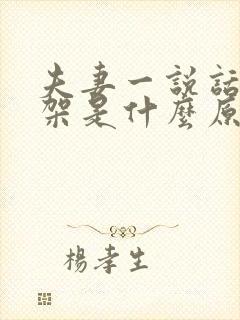 夫妻一說話
架是什麼原
楊孝生